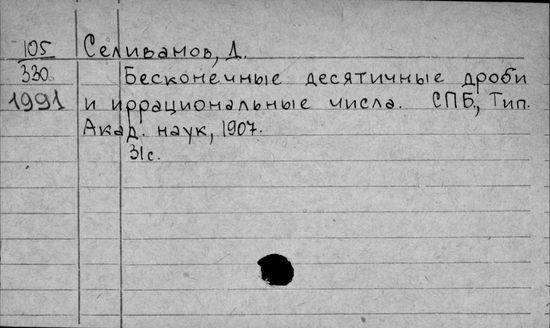 105 Селиванов, Д.
330 Бесконечные десятичные дроби
1991 и иррациональные числа. СПБ., Тип.
Акад. наук, 1907.
31с.